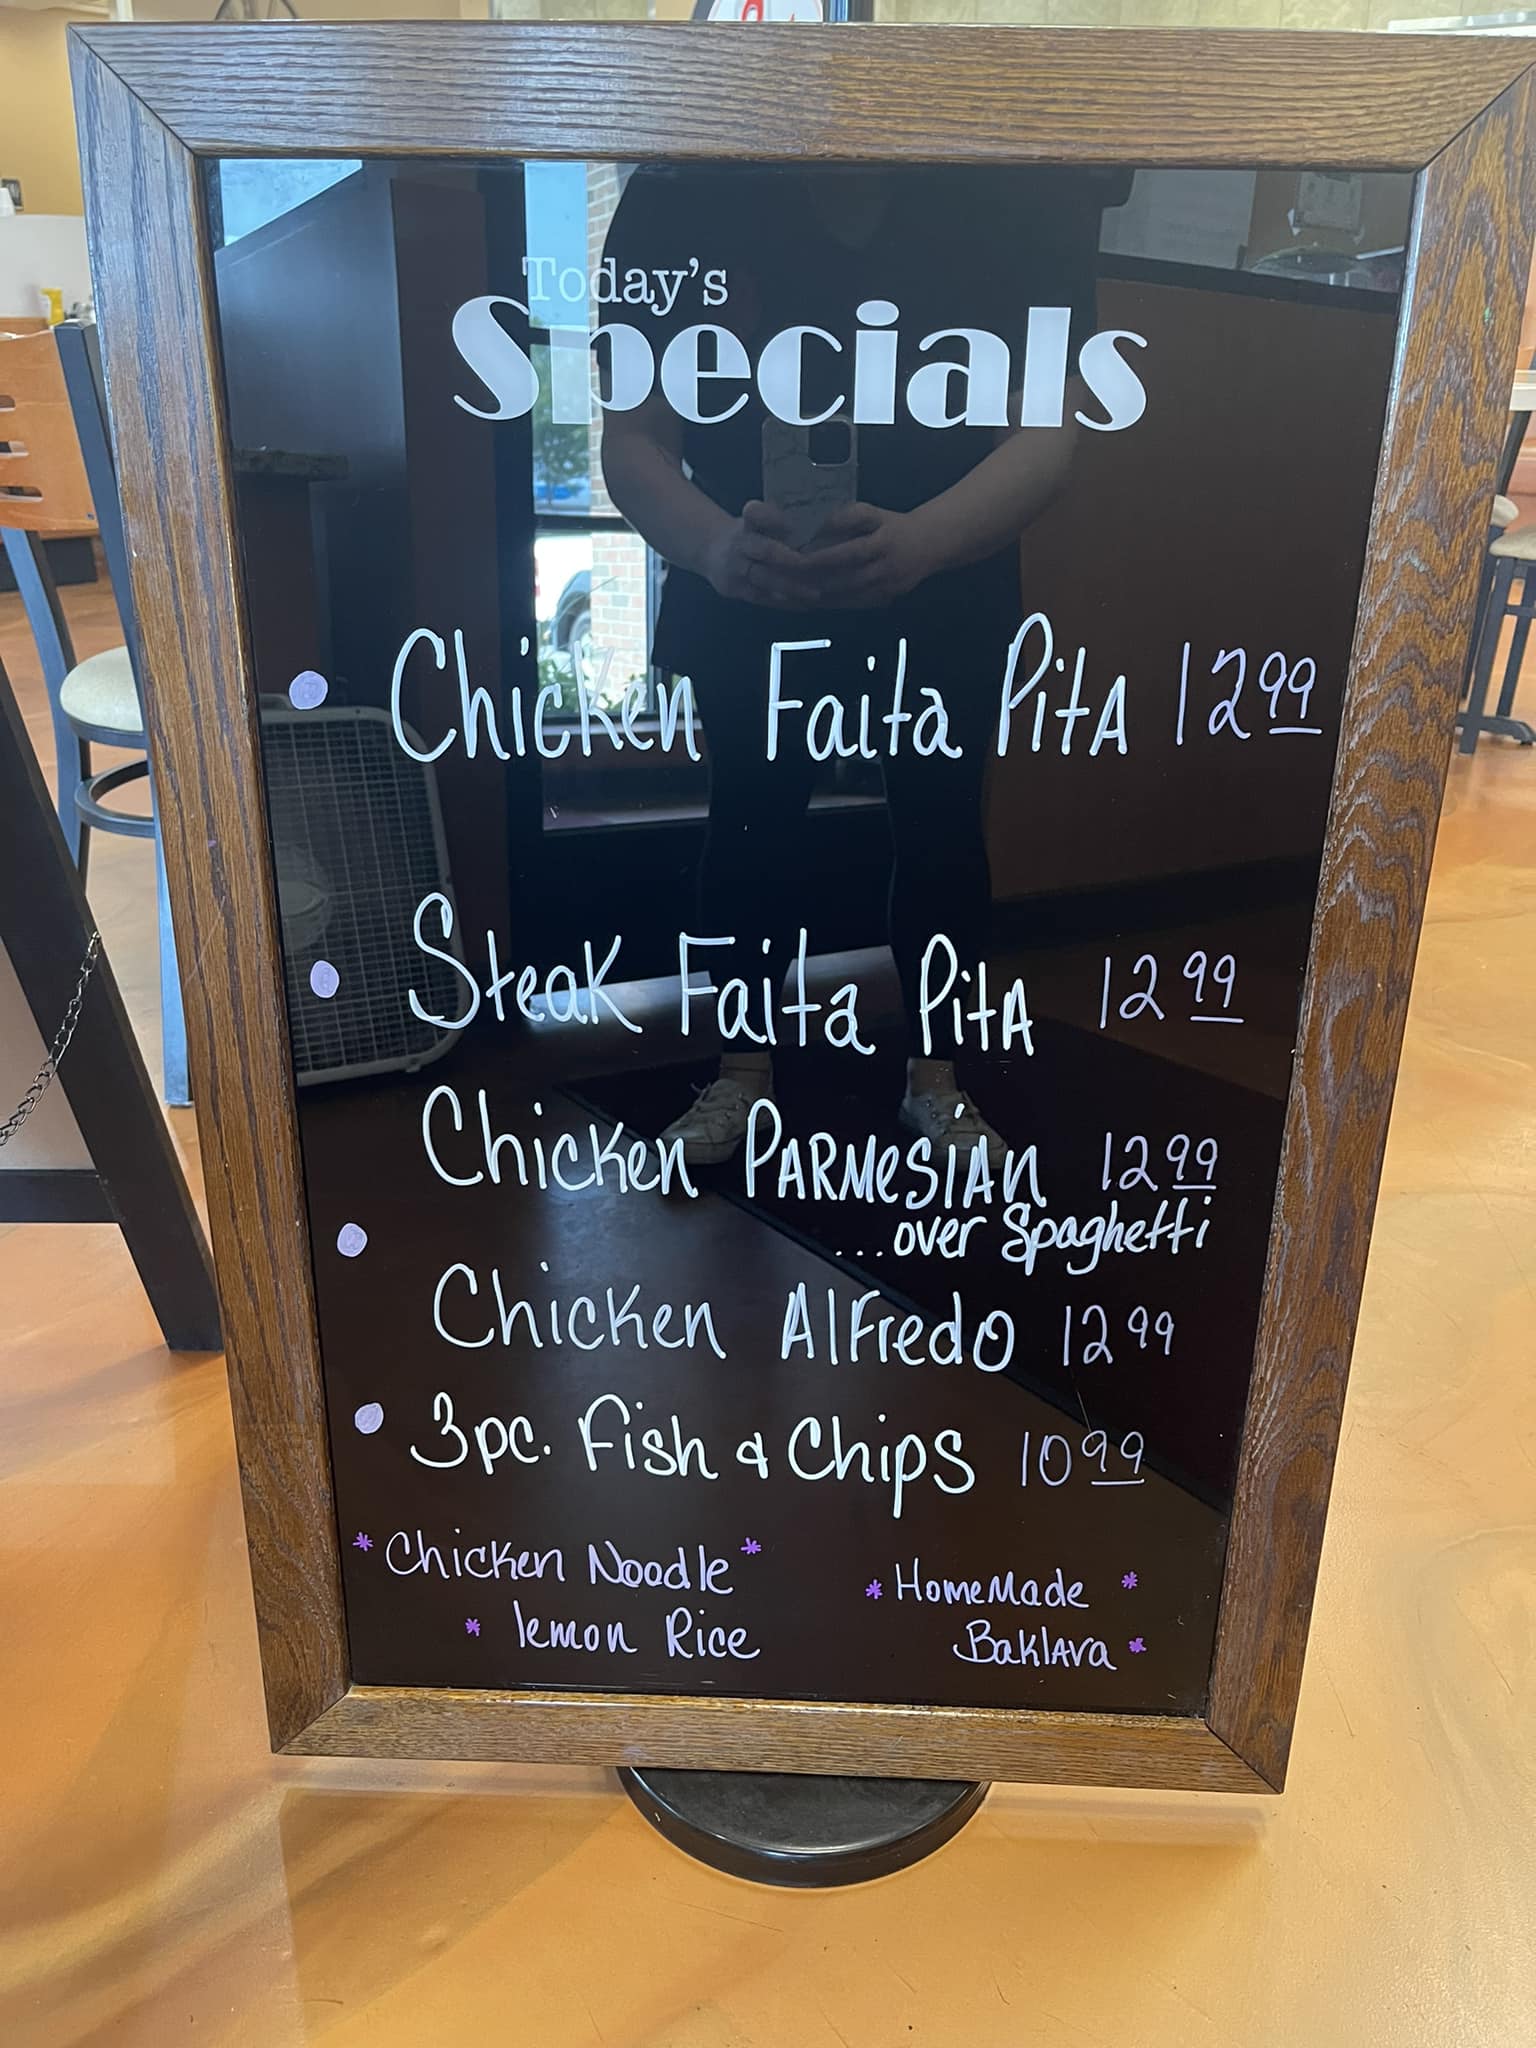 Today's
Specials
Chicken Faita Pita 12.99
Steak Faita Pita 12.99
Chicken Parmesian 12.99
...over Spaghetti
Chicken Alfredo 12 99
3pc. Fish & Chips 10 99
*Chicken Noodle*
* lemon Rice
*HomeMade *
Baklava *